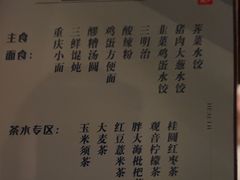 主食
面食：
重庆小面
三鲜馄饨
醪糟汤圆
鸡蛋方便面
酸辣粉
三明治
韭菜鸡蛋水饺
猪肉大葱水饺
荠菜水饺
茶水专区：
玉米须茶
大麦茶
红豆薏米茶
胖大海枇杷茶
观音柠檬茶
桂圆红枣茶